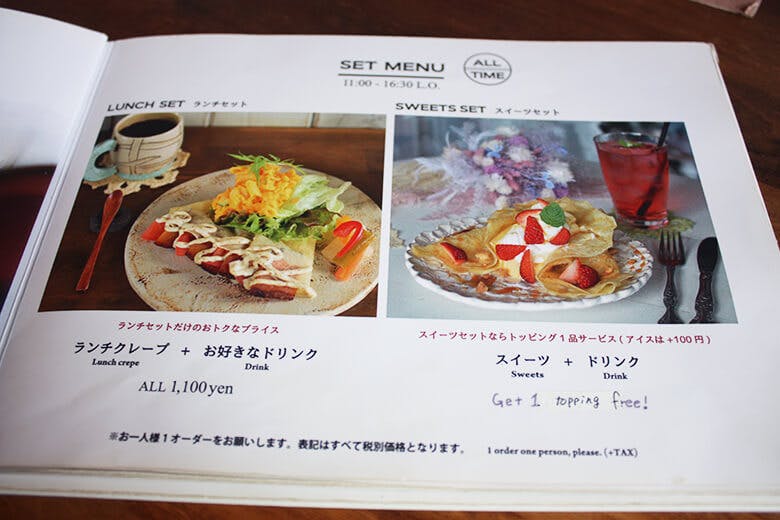 SET MENU
11:00 - 16:30 L.O.
ALL
TIME
LUNCH SET ランチセット
ランチセットだけのおトクなプライス
ランチクレープ + お好きなドリンク
Lunch crepe Drink
ALL 1,100yen
SWEETS SET スイーツセット
スイーツセットならトッピング1品サービス(アイスは+100円)
スイーツ + ドリンク
Sweets Drink
Get 1 topping free!
※お一人様1オーダーをお願いします。表記はすべて税別価格となります。 1 order one person, please. (+TAX)